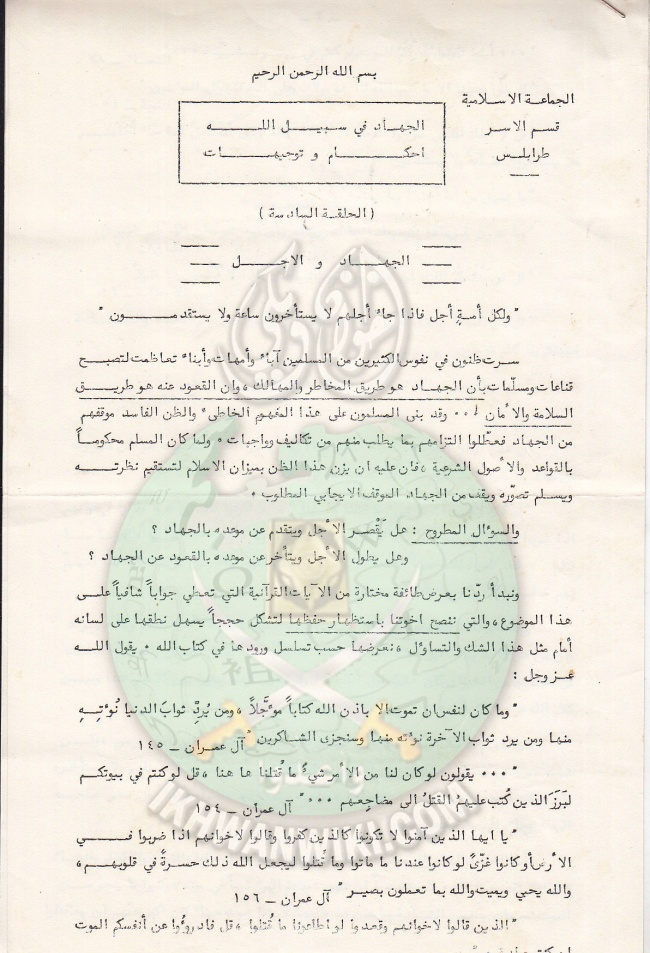 بسم الله الرحمن الرحيم
الجماعة الاسلامية
قسم الاسر
طرابلس
الجهاد في سبيل الله
احكام و توجيهات
( الحلقة السادسة )
الجهاد و الاجل
" ولكل أمةٍ أجل فاذا جاءَ أجلهم لا يستأخرون ساعة ولا يستقدمون "
سرت ظنون في نفوس الكثيرين من المسلمين آباءً وأمهات وأبناءً تعاظمت لتصبح
قناعات ومسلّمات بأن الجهاد هو طريق المخاطر والمهالك ، وان القعود عنه هو طريق
السلامة والأمان !.. وقد بنى المسلمون على هذا المفهوم الخاطىء والظن الفاسد موقفهم
من الجهاد فعطّلوا التزامهم بما يطلب منهم من تكاليف وواجبات . ولما كان المسلم محكوماً
بالقواعد والأصول الشرعية ، فان عليه ان يزن هذا الظن بميزان الاسلام لتستقيم نظرته
ويسلم تصوّره ويقف من الجهاد الموقف الايجابي المطلوب .
والسوءال المطروح : هل يَقْصر الأجل ويتقدم عن موعده بالجهاد ؟
وهل يطول الأجل ويتأخر عن موعده بالقعود عن الجهاد ؟
ونبدأ ردّنا بعرض طائفة مختارة من الآيات القرآنية التي تعطي جواباً شافياً على
هذا الموضوع ، والتي ننصح اخوتنا باستظهار حفظها لتشكل حججاً يسهل نطقها على لسانه
أمام مثل هذا الشك والتساوءل ، نعرضها حسب تسلسل ورودها في كتاب الله . يقول الله
عز وجل :
" وما كان لنفس ان تموت الا باذن الله كتاباً موءجَّلاً ، ومن يُردِّ ثوابَ الدنيا نُوءتِهِ
منها ومن يرد ثواب الآخرة نوءته منها وسنجزي الشاكرين " آل عمران ــ ١٤٥
" ... يقولون لو كان لنا من الأمر شيءٌ ما قُتلنا ها هنا ، قل لو كنتم في بيوتكم
لبَرَزَ الذين كُتب عليهمُ القتلُ الى مضاجِعهم ... " آل عمران ــ ١٥٤
" يا ايها الذين آمنوا لا تكونوا كالذين كفروا وقالوا لاخوانهم اذا ضربوا في
الأرض أو كانوا غزّىً لو كانوا عندنا ما ماتوا وما قُتلوا ليجعل الله ذلك حسرةً في قلوبهم ،
والله يحيي ويميت والله بما تعملون بصير " آل عمران ــ ١٥٦
" الذين قالوا لاخوانهم وقعدوا لو اطاعونا ما قُتلوا ، قل فادروءُوا عن أنفسكم الموت
IKHWANWIKI.COM